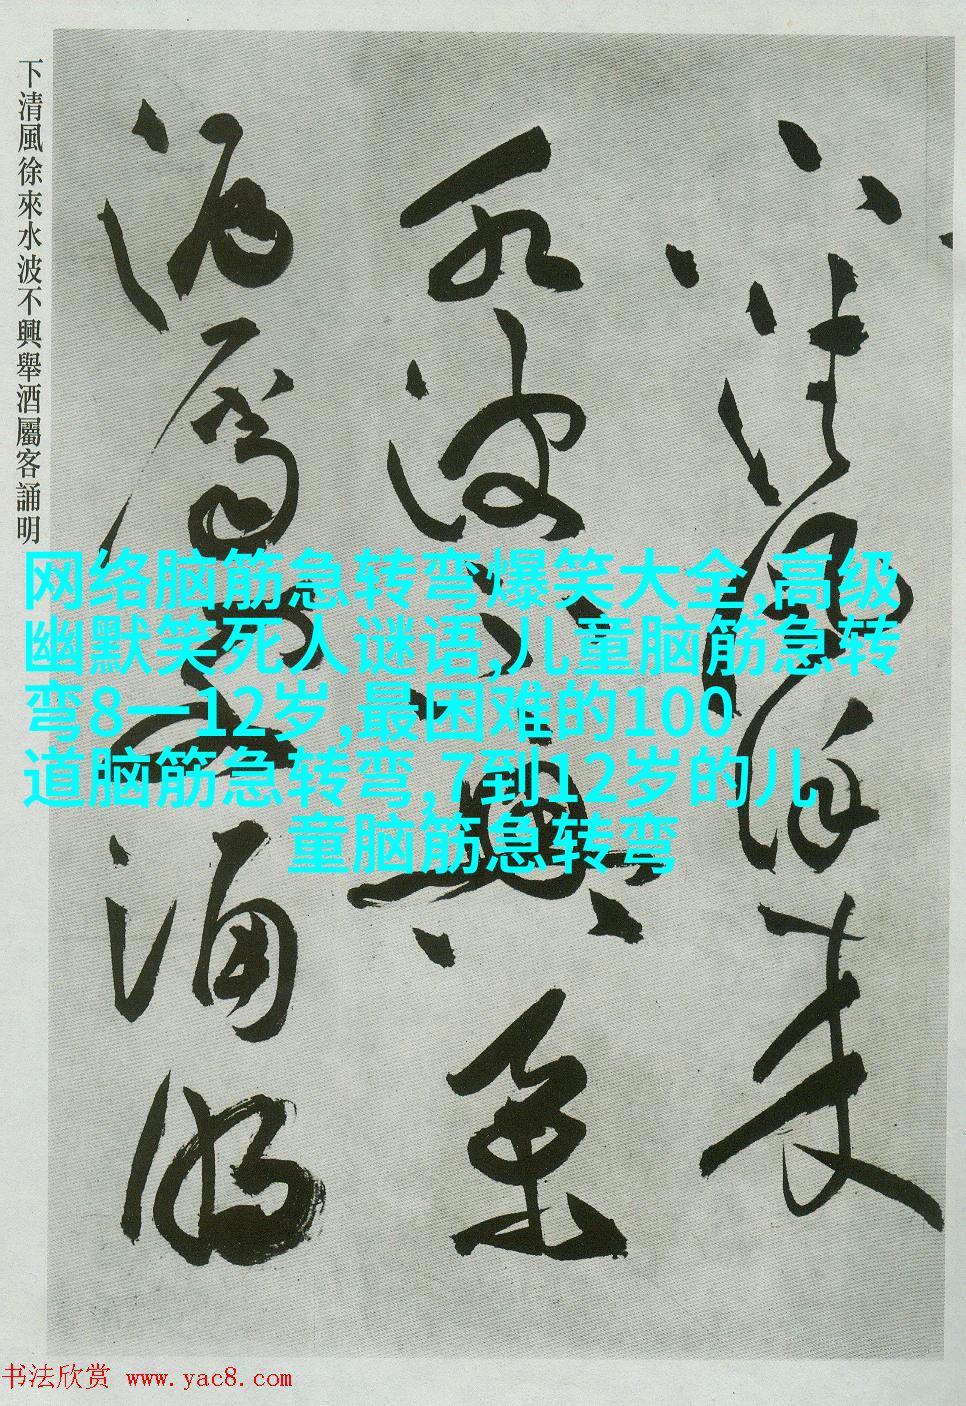 下清風徐來水波不興舉酒屬客誦明
下清風徐來
水波不興舉
酒屬客誦明
网络脑筋急转弯爆笑大全,高级
幽默笑死人谜语,儿童脑筋急转
弯8一12岁,最困难的100
道脑筋急转弯,7到12岁的儿
童脑筋急转弯
书法欣赏 www.yac8.com